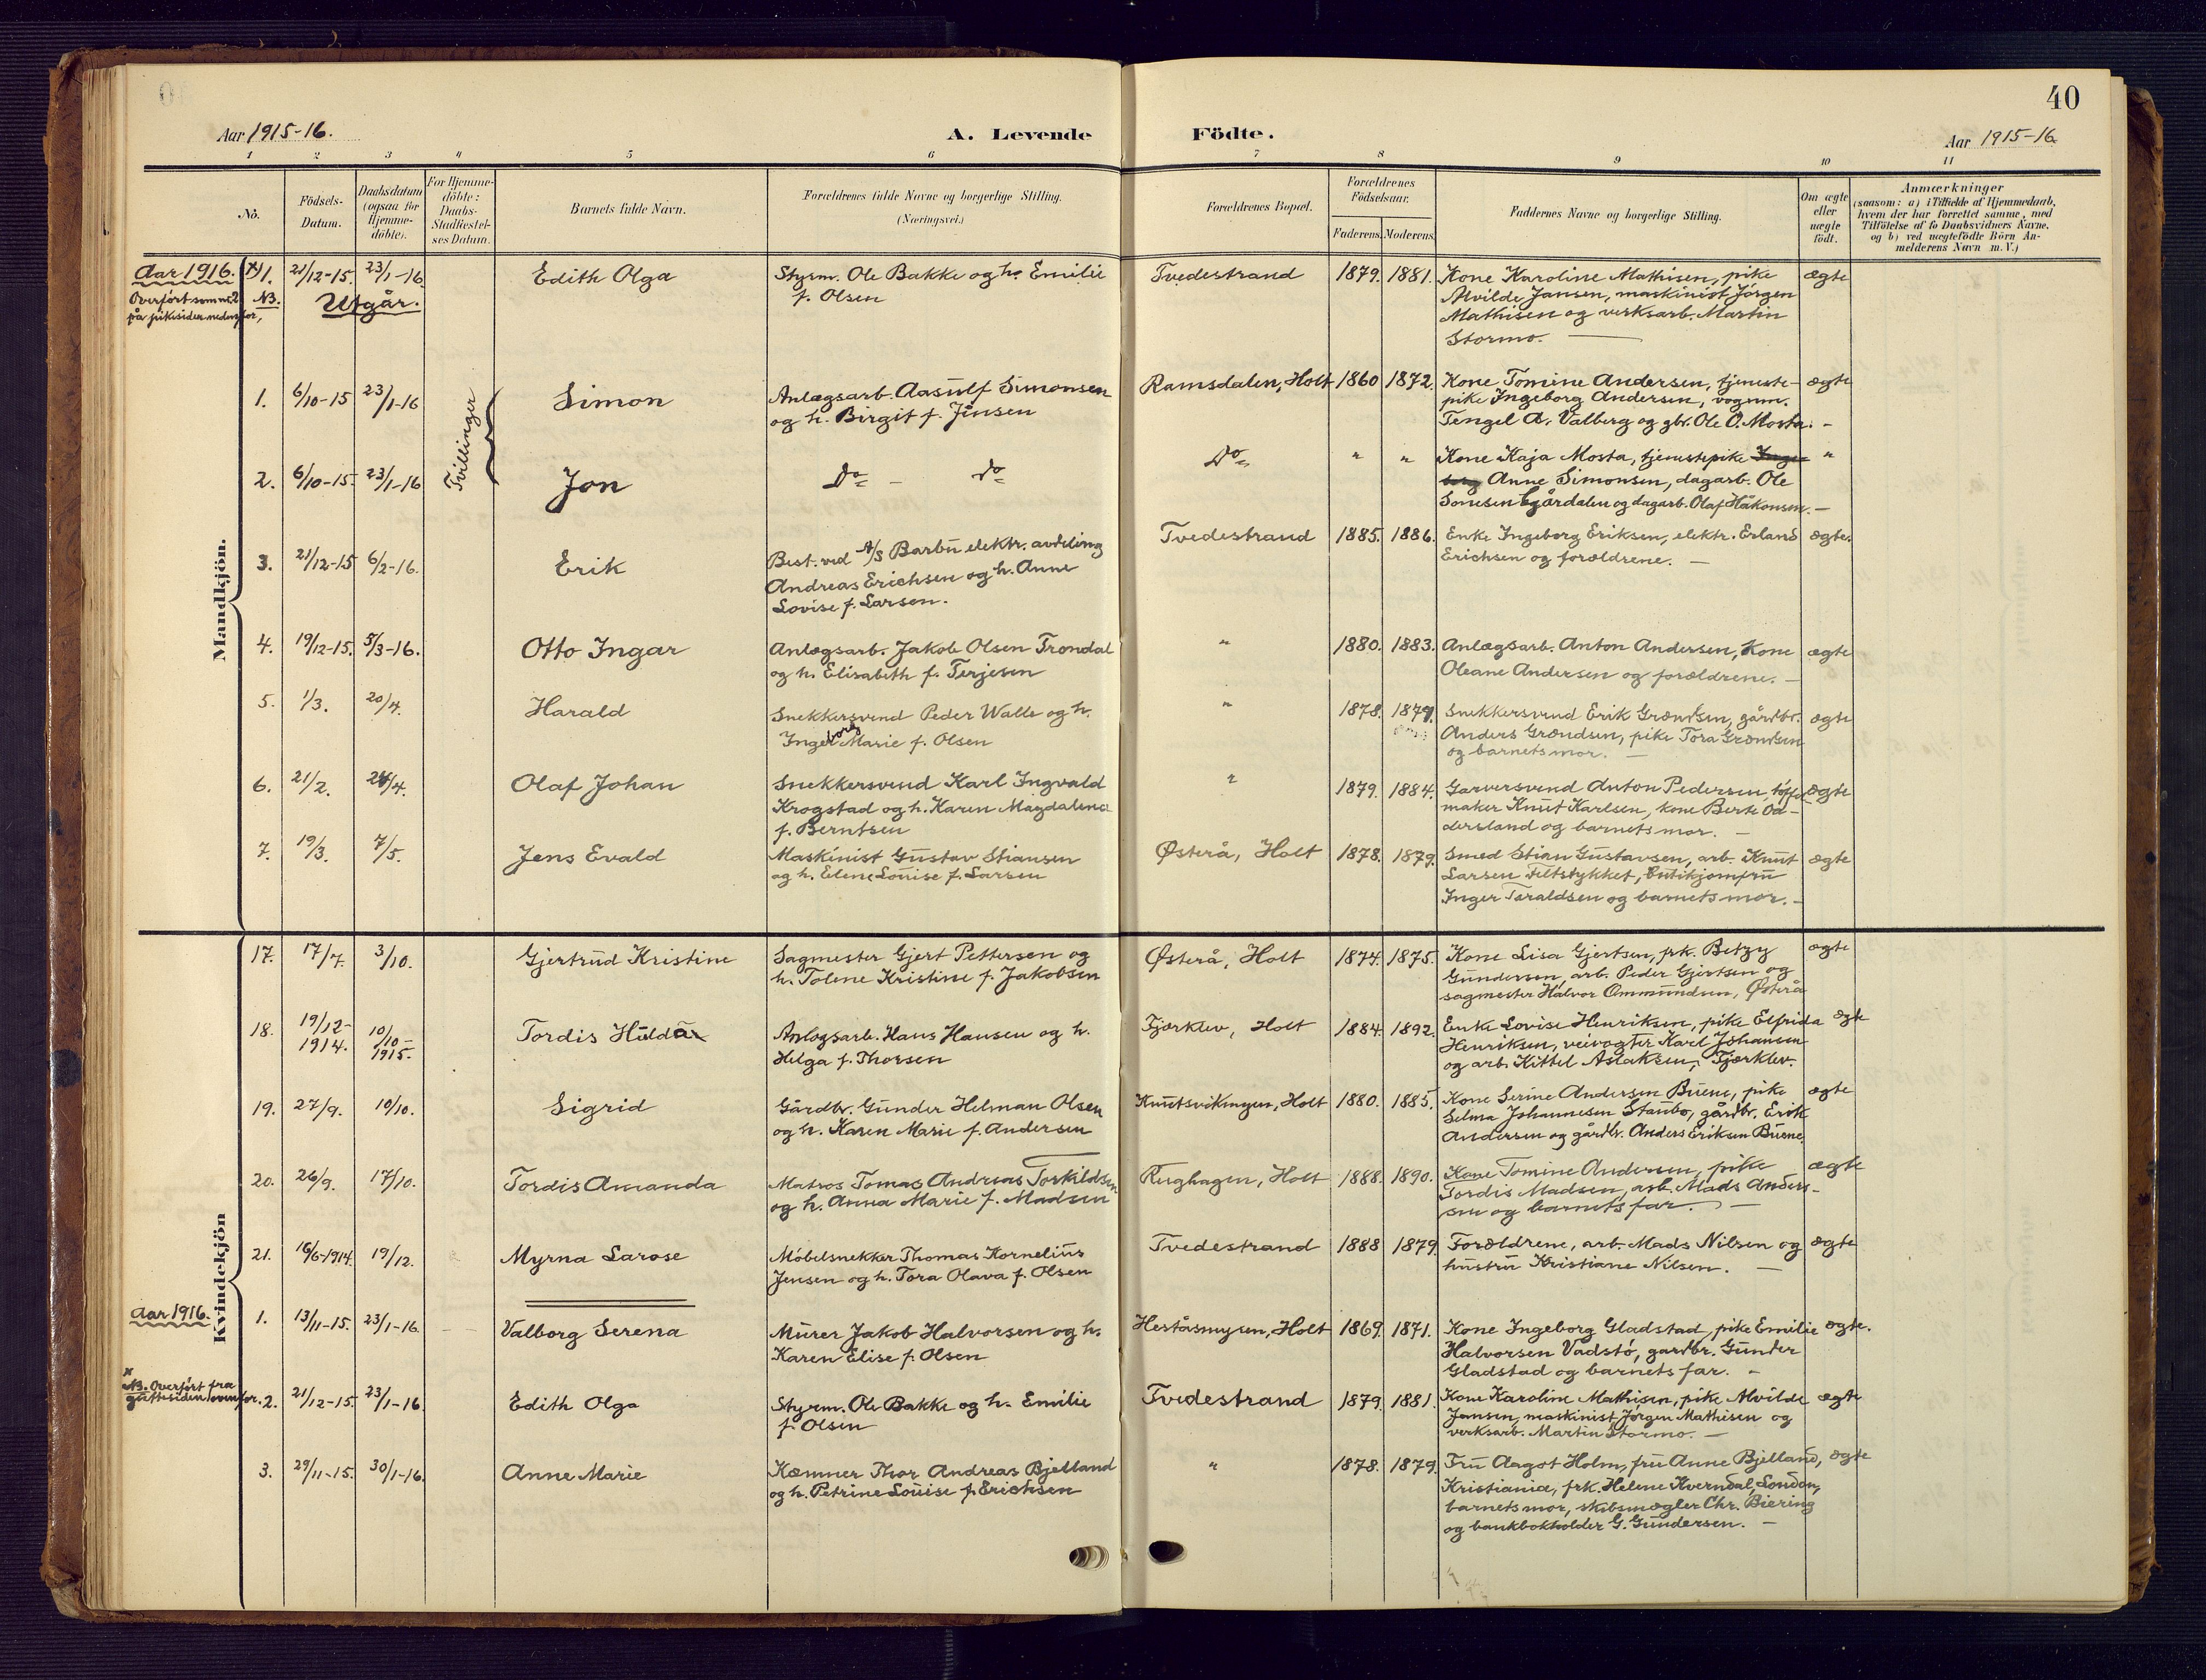 40
Aar 1915-16.
A. Levende Födte.
Aar 1915-16
1 2 3 4 5 6 7 8 9 10 11
No.
Födsels-Datum.
Daabsdatum (ogsaa for Hjemme-döbte).
For Hjemme-döbte: Daabs-Stadfæstel-ses Datum.
Barnets fulde Navn.
Forældrenes fulde Navne og borgerlige Stilling.
(Næringsvei.)
Forældrenes Bopæl.
Forældrenes Födselsaar.
Faderens. Moderens.
Faddernes Navne og borgerlige Stilling.
Om ægte eller uægte födt.
Anmærkninger
(saasom: a) i Tilfælde af Hjemmedaab,
hvem der har forrettet samme, med
Tilföielse af to Daabsvidners Navne,
og b) ved uægtefödte Börn An-
melderens Navn m. V.)
Mandkjön.
Aar 1916.
Overført som nr. 2 NB.
på pikesiden nedenfor,
Utgår.
x) 1. 21/12-15. 23/1-16. Edith Olga
Styrm. Ole Bakke og h. Emilie
f. Olsen
Tvedestrand 1879. 1881.
Kone Karoline Mathisen, pike
Alvilde Jansen, maskinist Jörgen
Mathisen og verksarb. Martin
Stormo. —
ægte
Tvillinger
1. 6/10-15 23/1-16 Simon
Anlægsarb. Aasulf Simonsen
og h. Birgit f. Jensen
Ramsdalen, Holt 1860 1872.
Kone Tomine Andersen, tjeneste-
pike Ingeborg Andersen, vognm.
Tengel A. Valberg og gbr. Ole O. Mosta. -
ægte
2. 6/10-15. 23/1-16 Jon
Do - Do
Do " "
Kone Kaja Mosta, tjenestepike Inge-
borg Anne Simonsen, dagarb. Ole
Simesen Egårdalen og dagarb. Olaf Håkonsen. —
"
3. 21/12-15 6/2-16. Erik
Best. ved A/S Barbu elektr. avdeling
Andreas Erichsen og h. Anne
Lovise f. Larsen.
Tvedestrand 1885. 1886.
Enke Ingeborg Eriksen, elektr. Erland
Erichsen og forældrene. —
ægte.
4. 19/12-15. 5/3-16. Otto Ingar
Anlægsarb. Jakob Olsen Trondal
og h. Elisabeth f. Terjesen
" 1880. 1883.
Anlægsarb. Anton Andersen, Kone
Oleane Andersen og forældrene. —
ægte
5. 1/3. 20/4. Harald
Snekkersvend Peder Walle og h.
Ingeborg Marie f. Olsen
" 1878. 1879.
Snekkersvend Erik Grændsen, gårdbr.
Anders Grændsen, pike Tora Grændsen
og barnets mor. —
ægte
6. 21/2. 24/4. Olaf Johan
Snekkersvend Karl Ingvald
Krogstad og h. Karen Magdalena
f. Berntsen
" 1879. 1884.
Garversvend Anton Pedersen, töffel-
maker Knut Karlsen, kone Berte Od-
dersland og barnets mor. —
ægte
7. 19/3. 7/5. Jens Evald
Maskinist Gustav Stiansen
og h. Elene Louise f. Larsen
Østerå, Holt 1878. 1879.
Smed Stian Gustavsen, arb. Knut
Larsen Feltstykket, butikjomfru
Inger Taraldsen og barnets mor. -
ægte
Kvindekjön
17. 17/7. 3/10. Gjertrud Kristine
Sagmester Gjert Pettersen og
h. Tolene Kristine f. Jakobsen
Østerå, Holt 1874. 1875.
Kone Lisa Gjertsen, frk. Betzy
Gundersen, arb. Peder Gjertsen og
sagmester Halvor Ommundsen, Østerå
ægte
18. 19/12-1914. 10/10-1915. Tordis Hulda
Anlægsarb. Hans Hansen og h.
Helga f. Thorsen
Fjærklev, Holt 1884. 1892.
Enke Lovise Henriksen, pike Elfrida
Henriksen, veivogter Karl Johansen
og arb. Kittel Aslaksen, Fjærklev.
ægte
19. 27/9. 10/10. Sigrid
Gårdbr. Gunder Helman Olsen
og h. Karen Marie f. Andersen
Knutsvikmyren, Holt 1880. 1885.
Kone Serine Andersen Buene, pike
Selma Johannesen Staubo, gårdbr. Erik
Andersen og gårdbr. Anders Eriksen Buene
ægte
20. 26/9. 17/10. Tordis Amanda
Matros Tomas Andreas Torkildsen
og h. Anna Marie f. Madsen
Rughagen, Holt 1888. 1890.
Kone Tomine Andersen, pike
Tordis Madsen, arb. Mads Anders-
sen og barnets far. —
ægte
21. 16/6-1914. 19/12. Myrna Larose
Möbelsnekker Thomas Kornelius
Jensen og h. Tora Olava f. Olsen
Tvedestrand 1888 1879
Forældrene, arb. Mads Nilsen og
hustru Kristiane Nilsen. —
ægte
Aar 1916.
1. 13/11-15. 23/1-16. Valborg Serena
Murer Jakob Halvorsen og h.
Karen Elise f. Olsen
Heståsmyren, Holt 1869. 1871.
Kone Ingeborg Gladstad, pike Emilie
Halvorsen Vadstö, gardbr. Gunder
Gladstad og barnets far. -
ægte.
x
NB. Overført fra
guttesiden ovenfor.
2. 21/12-15. 23/1-16. Edith Olga
Styrm. Ole Bakke og h. Emilie
f. Olsen
Tvedestrand 1879. 1881.
Kone Karoline Mathisen, pike Alvilde
Jansen, maskinist Jörgen Mathisen og
verksarb. Martin Stormo. —
ægte
3. 29/11-15. 30/1-16. Anne Marie
Kæmner Thor Andreas Bjelland
og h. Petrine Louise f. Erichsen
" 1878. 1879.
Fru Aagot Holm, fru Anne Bjelland,
Kristiania, frk. Helene Kverndal, London,
barnets mor, skibsmægler Chr. Biering
og bankbokholder G. Gundersen. —
ægte